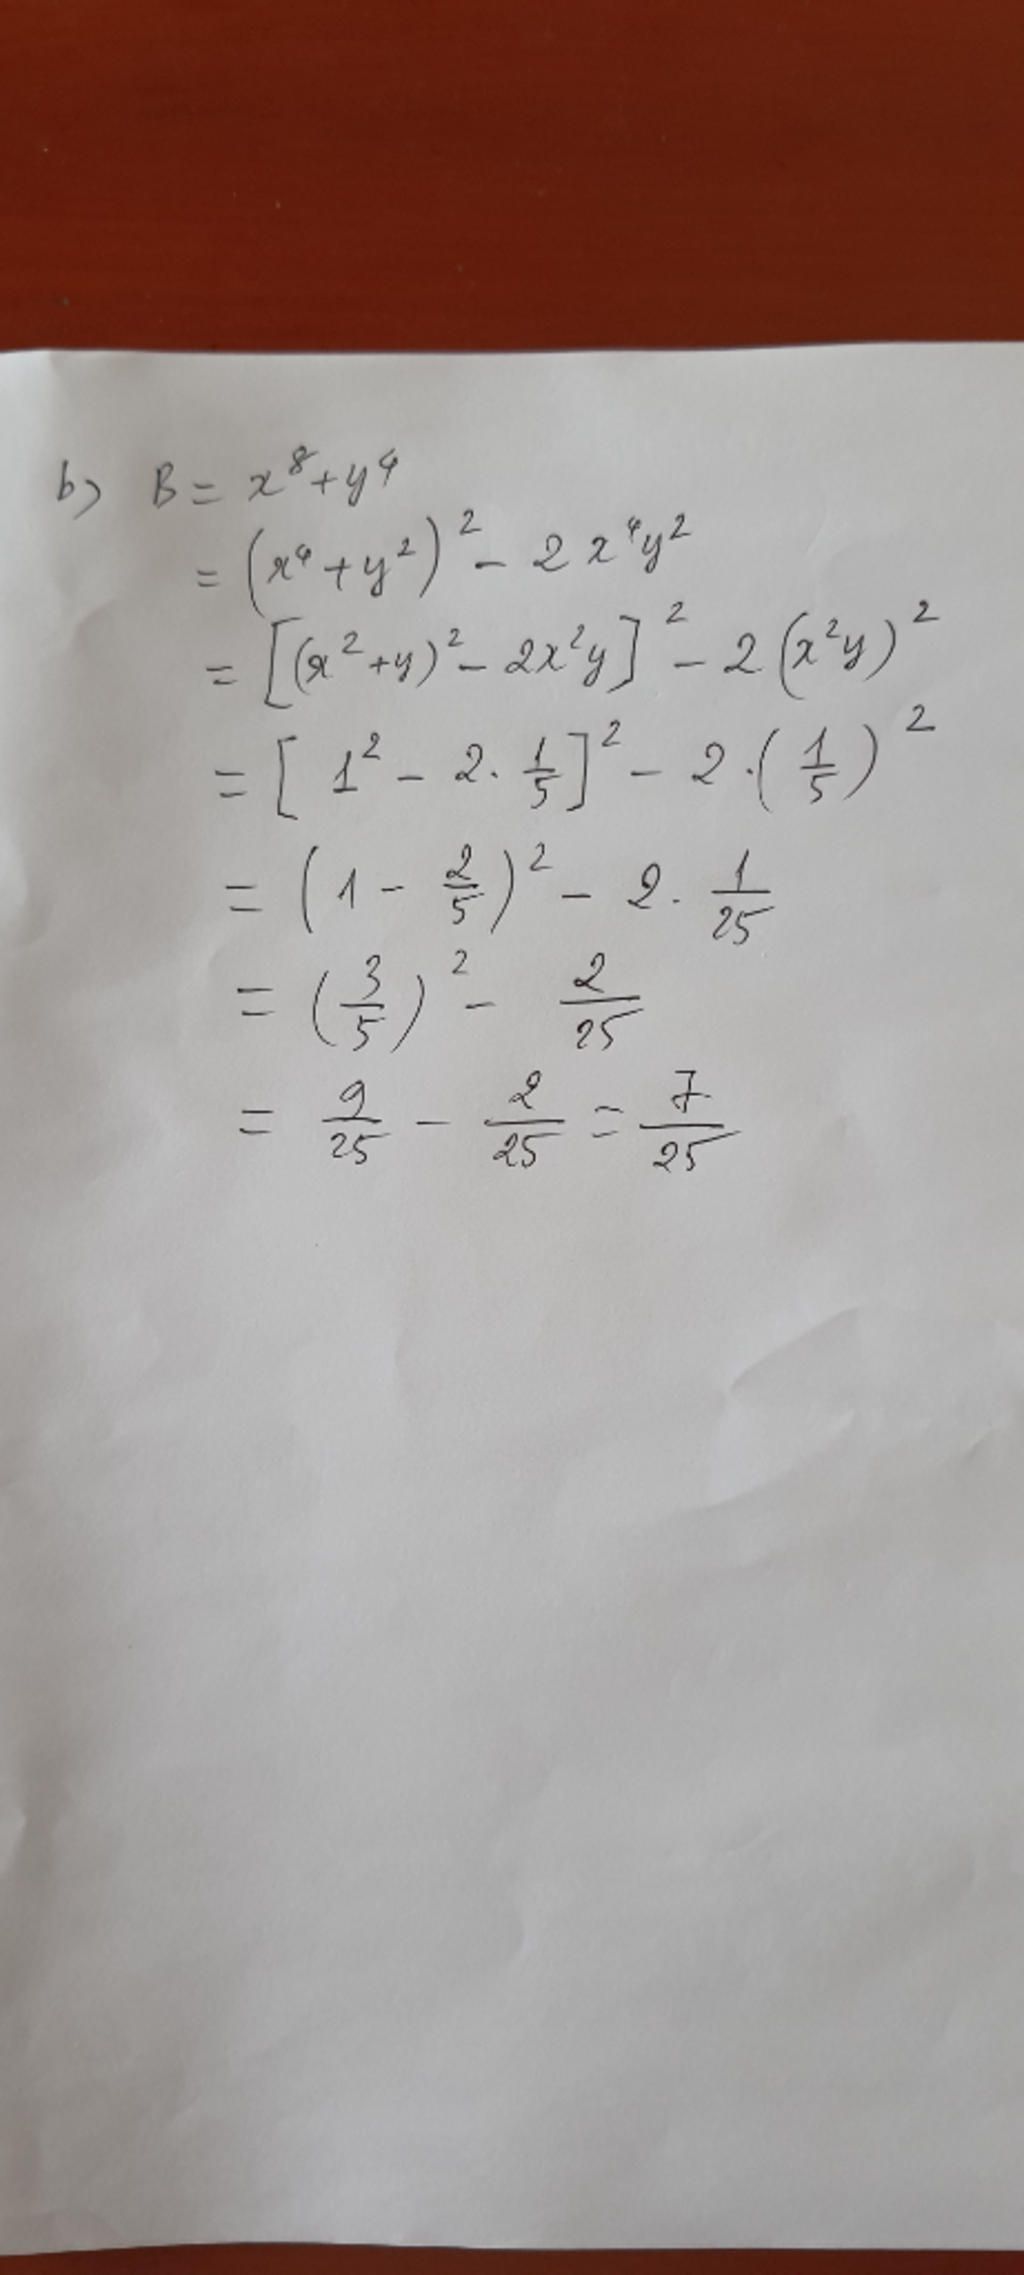 b) B = x⁸ + y⁴
= (x⁴ + y²)² - 2x⁴y²
= [(x² + y)² - 2x²y]² - 2(x²y)²
= [1² - 2. 1/5]² - 2.(1/5)²
= (1 - 2/5)² - 2. 1/25
= (3/5)² - 2/25
= 9/25 - 2/25 = 7/25